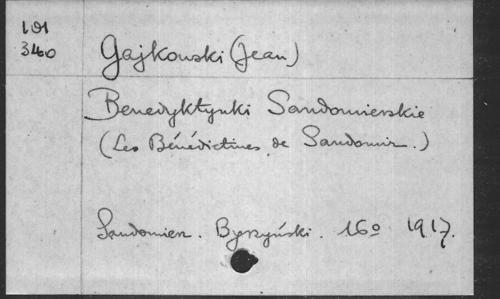 101
340
Gajkowski (Jean)
Benedyktynki Sandomierskie
(Les Bénédictines de Sandomir.)
Sandomierz. Byrzyński. 16º 1917.